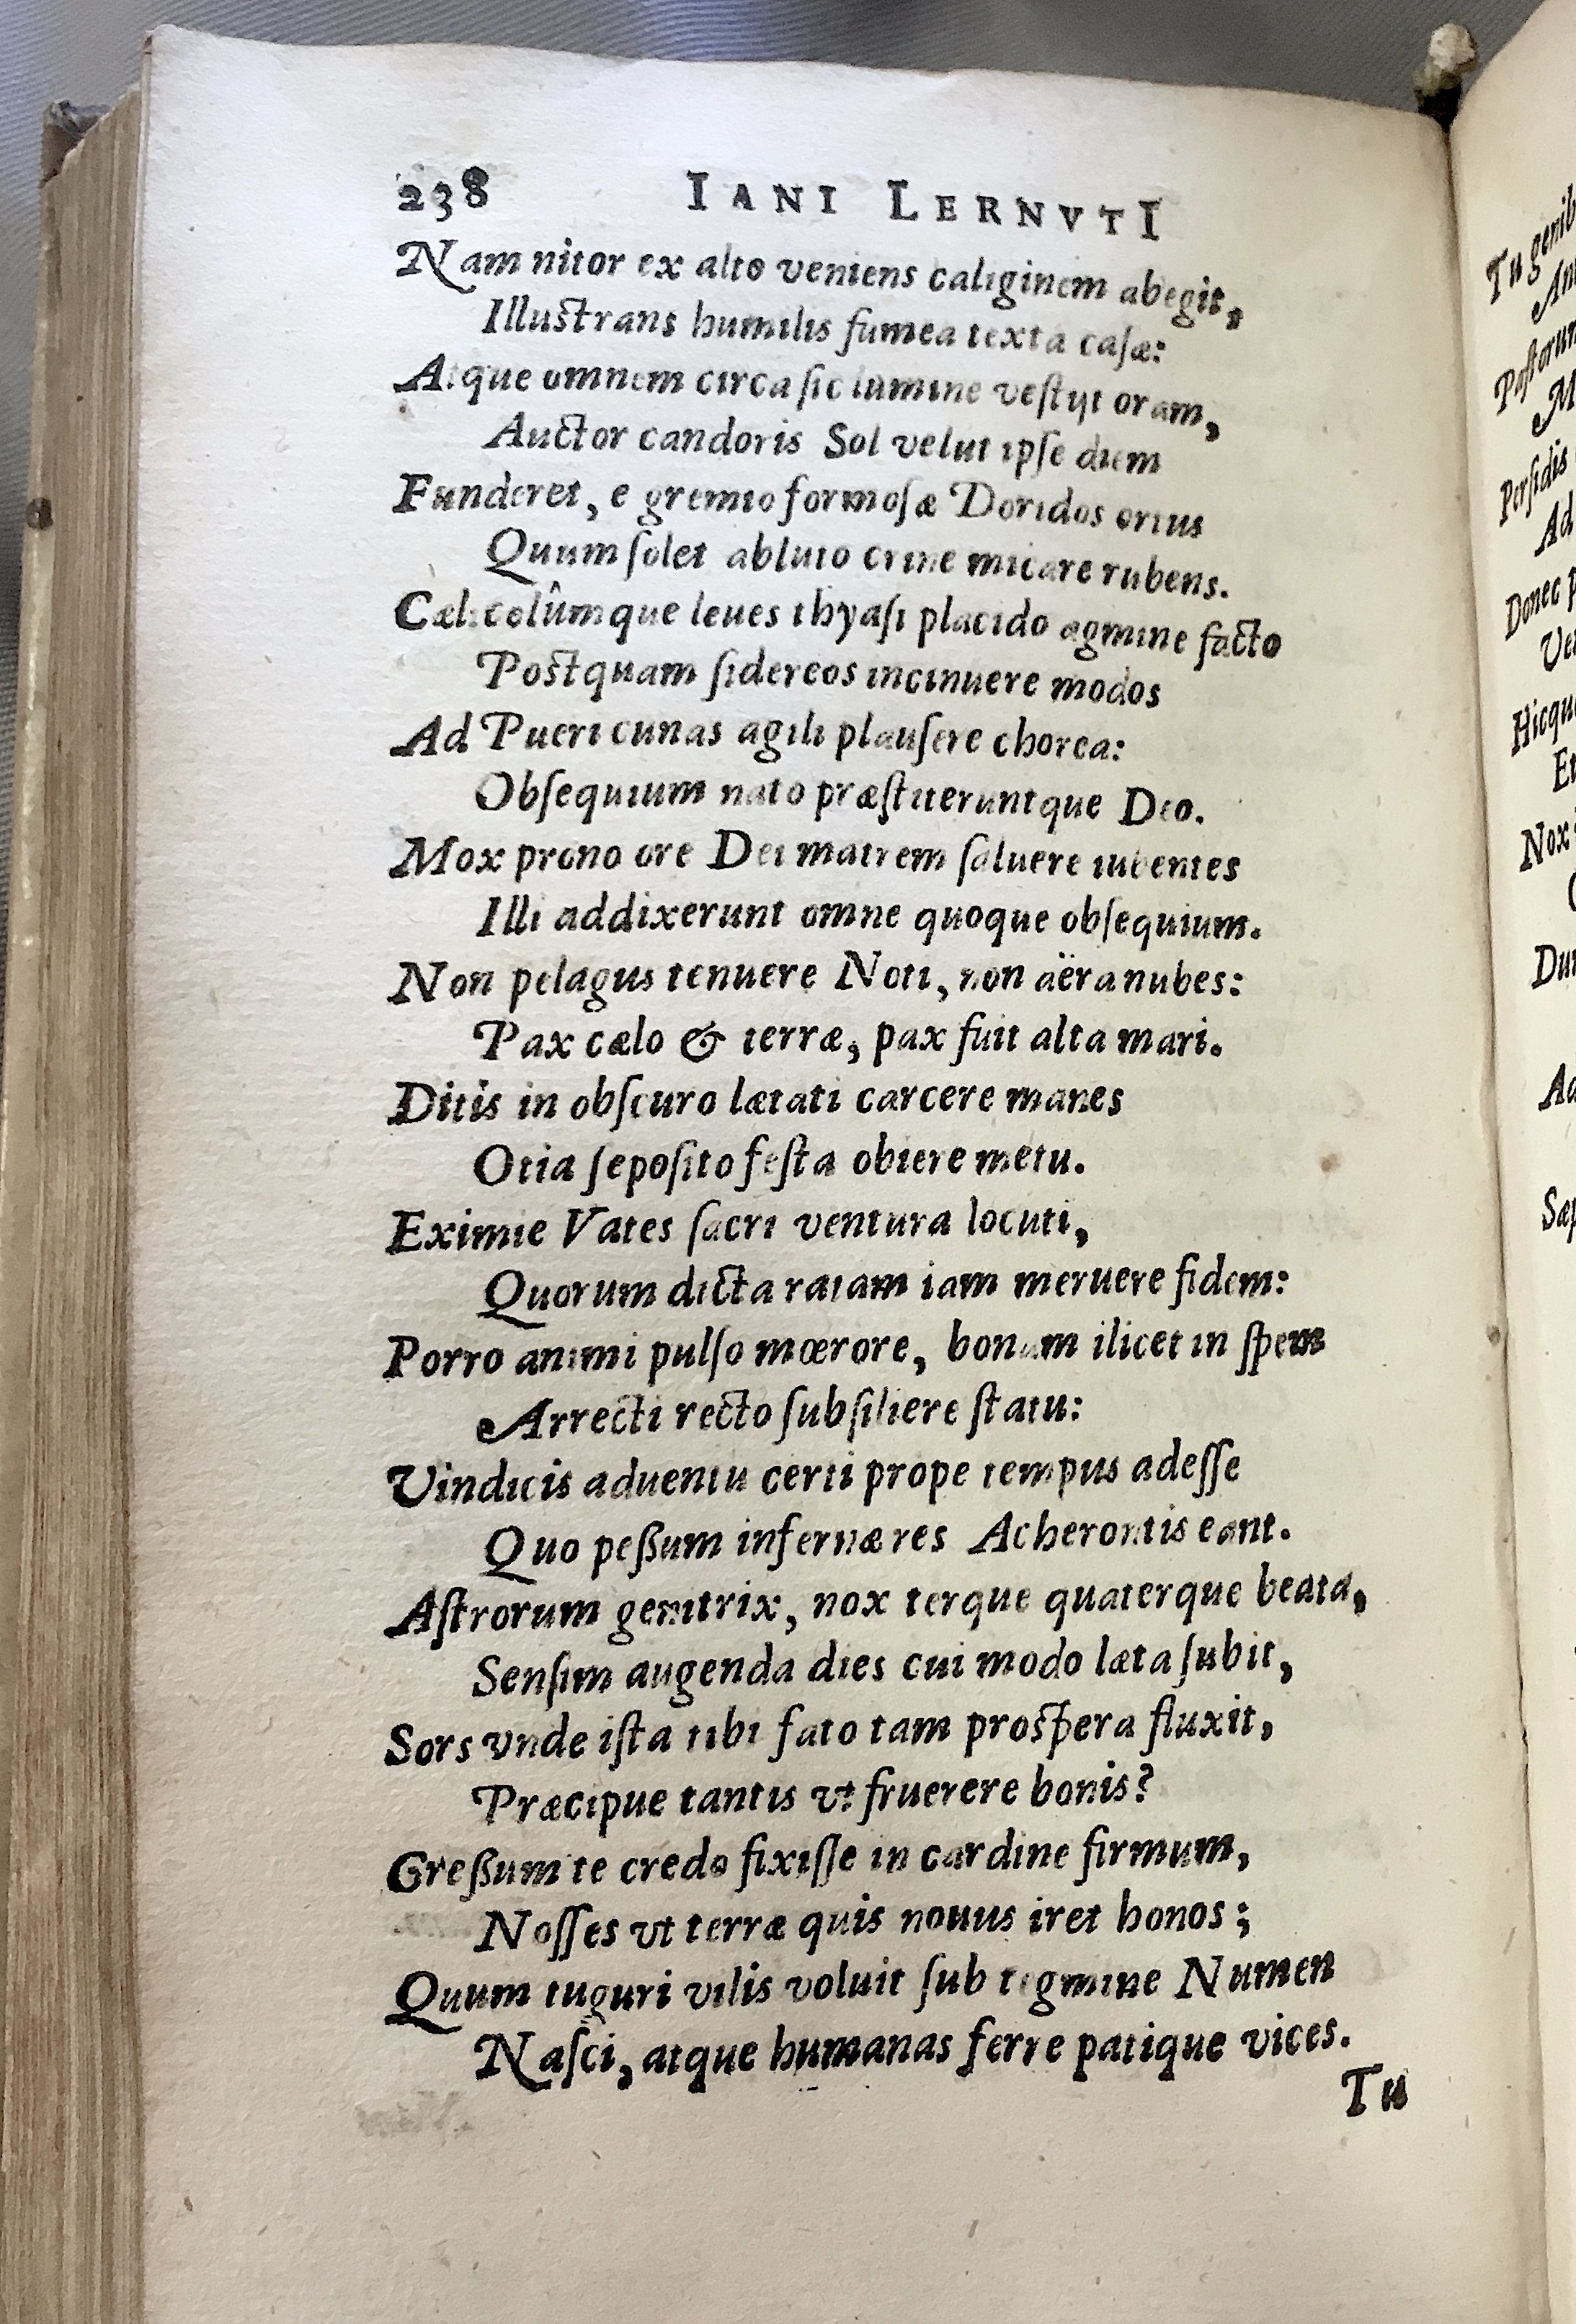 238 IANI LERNVTI
Nam nitor ex alto veniens caliginem abegit,
Illustrans humilis fumea texta casæ:
Atque omnem circa sic lumine vestijt oram,
Auctor candoris Sol velut ipse diem
Funderet, e gremio formosæ Doridos ortus
Quum solet abluto crine micare rubens.
Cælicolûmque leues thyasi placido agmine facto
Postquam sidereos incinuere modos
Ad Pueri cunas agili plausere chorea:
Obsequium nato præstiteruntque Deo.
Mox prono ore Dei matrem saluere iubentes
Illi addixerunt omne quoque obsequium.
Non pelagus tenuere Noti, non aëra nubes:
Pax cælo & terræ, pax fuit alta mari.
Ditis in obscuro lætati carcere manes
Otia seposito festa obiere metu.
Eximie Vates sacri ventura locuti,
Quorum dicta ratam iam meruere fidem:
Porro animi pulso mœrore, bonam ilicet in spem
Arrecti recto subsiliere statu:
Vindicis aduentu certi prope tempus adesse
Quo peßum infernæ res Acherontis eant.
Astrorum genitrix, nox terque quaterque beata,
Sensim augenda dies cui modo læta subit,
Sors vnde ista tibi fato tam prospera fluxit,
Præcipue tantis vt fruerere bonis?
Greßum te credo fixisse in cardine firmum,
Nosses vt terræ quis nouus iret honos;
Quum tuguri vilis voluit sub tegmine Numen
Nasci, atque humanas ferre patique vices.
Tu
Tu
Pastorum
Persidis
Ad
Donec
Nox